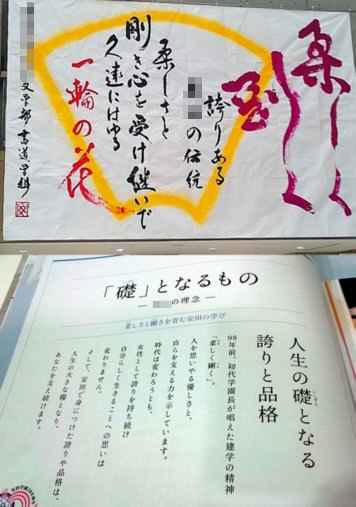 柔しく
剛く
誇りある
の伝統
柔しさと
剛き心を受け継いで
久遠にはゆる
一輪の花
文学部 書道学科
「礎」となるもの
― の理念 ―
柔しさと剛さを育む安田の学び
人生の礎となる
誇りと品格
98年前、初代学園長が唱えた建学の精神
「柔しく剛く」。
人を思いやる優しさと、
自らを支える力を示しています。
時代は変わろうとも、
女性として誇りを持ち続け
自分らしく生きることへの思いは
変わりません。
そして、安田で身につけた誇りや品格は、
人生の大きな礎となり、
あなたを支え続けます。